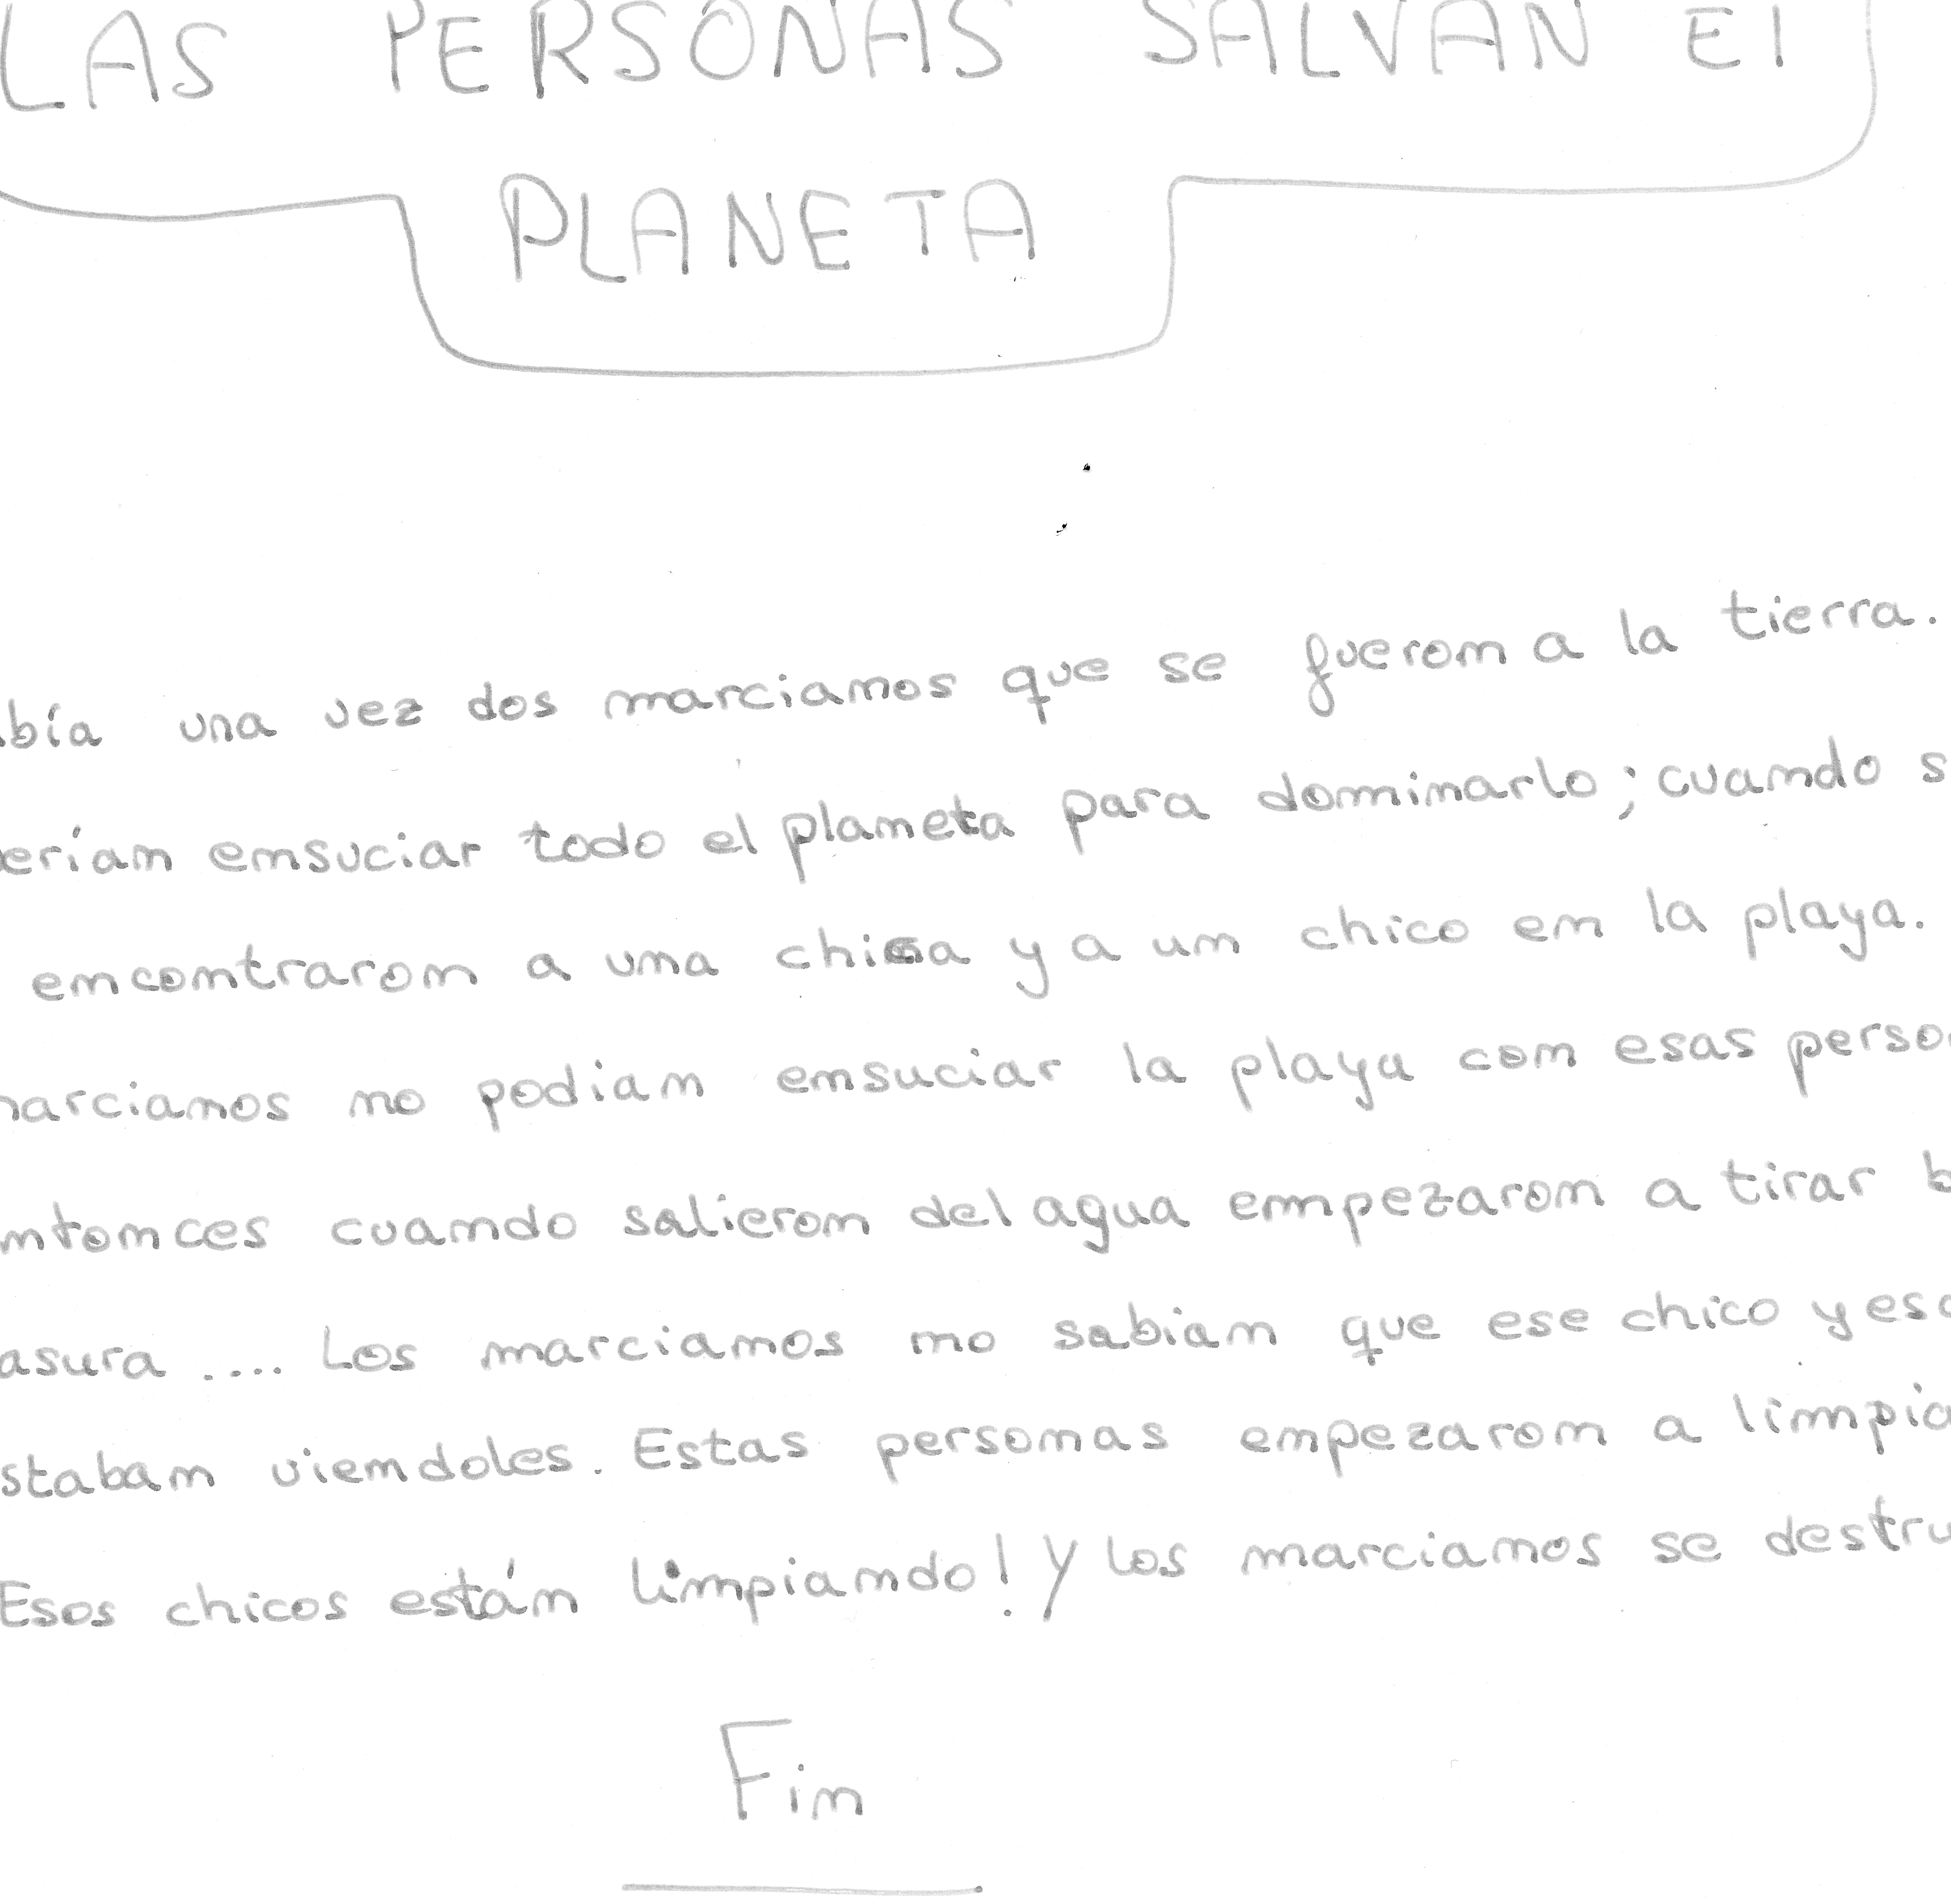 LAS PERSONAS SALVAN El
PLANETA
bía una vez dos marcianos que se fueron a la tierra.
erían ensuciar todo el planeta para dominarlo; cuando s
encontraron a una chica y a un chico en la playa.
marcianos no podian ensuciar la playa con esas perso
ntonces cuando salieron del agua empezaron a tirar b
asura .... Los marcianos no sabian que ese chico y esa
staban viendoles. Estas personas empezaron a limpia
Esos chicos están limpiando! Y los marcianos se destru
Fin